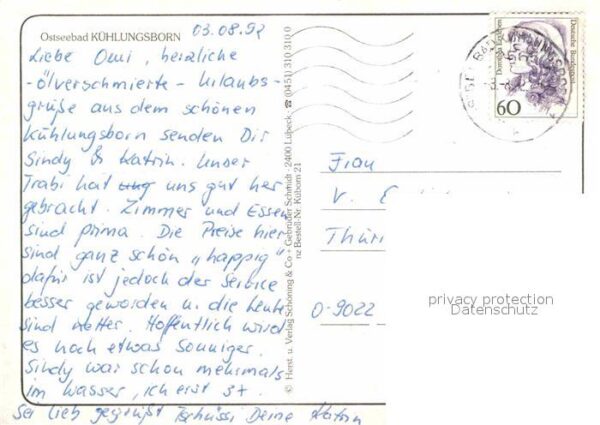 Ostseebad KÜHLUNGSBORN
03.08.92
Liebe Omi, herzliche
-ölverschmierte- Urlaubs-
grüße aus dem schönen
Kühlungsborn senden Dir
Sindy & Katrin. Unser
Trabi hat uns gut her
gebracht. Zimmer und Essen
sind prima. Die Preise hier
sind ganz schön "happig"
dafür ist jedoch der Service
besser geworden u. die Leute
sind netter. Hoffentlich wird
es noch etwas Sonniger.
Sindy war schon mehrmals
im Wasser, ich erst 3x.
Sei lieb gegrüßt Tschüssi Deine Katrin
© Herst. u. Verlag Schöning & Co + Gebrüder Schmidt · 2400 Lübeck · ☎ (0451) 310 310 0
nz Bestell-Nr. Kübom 21
Deutsche Bundespost
60
Frau
V. E
Thüri
O-9022
privacy protection
Datenschutz